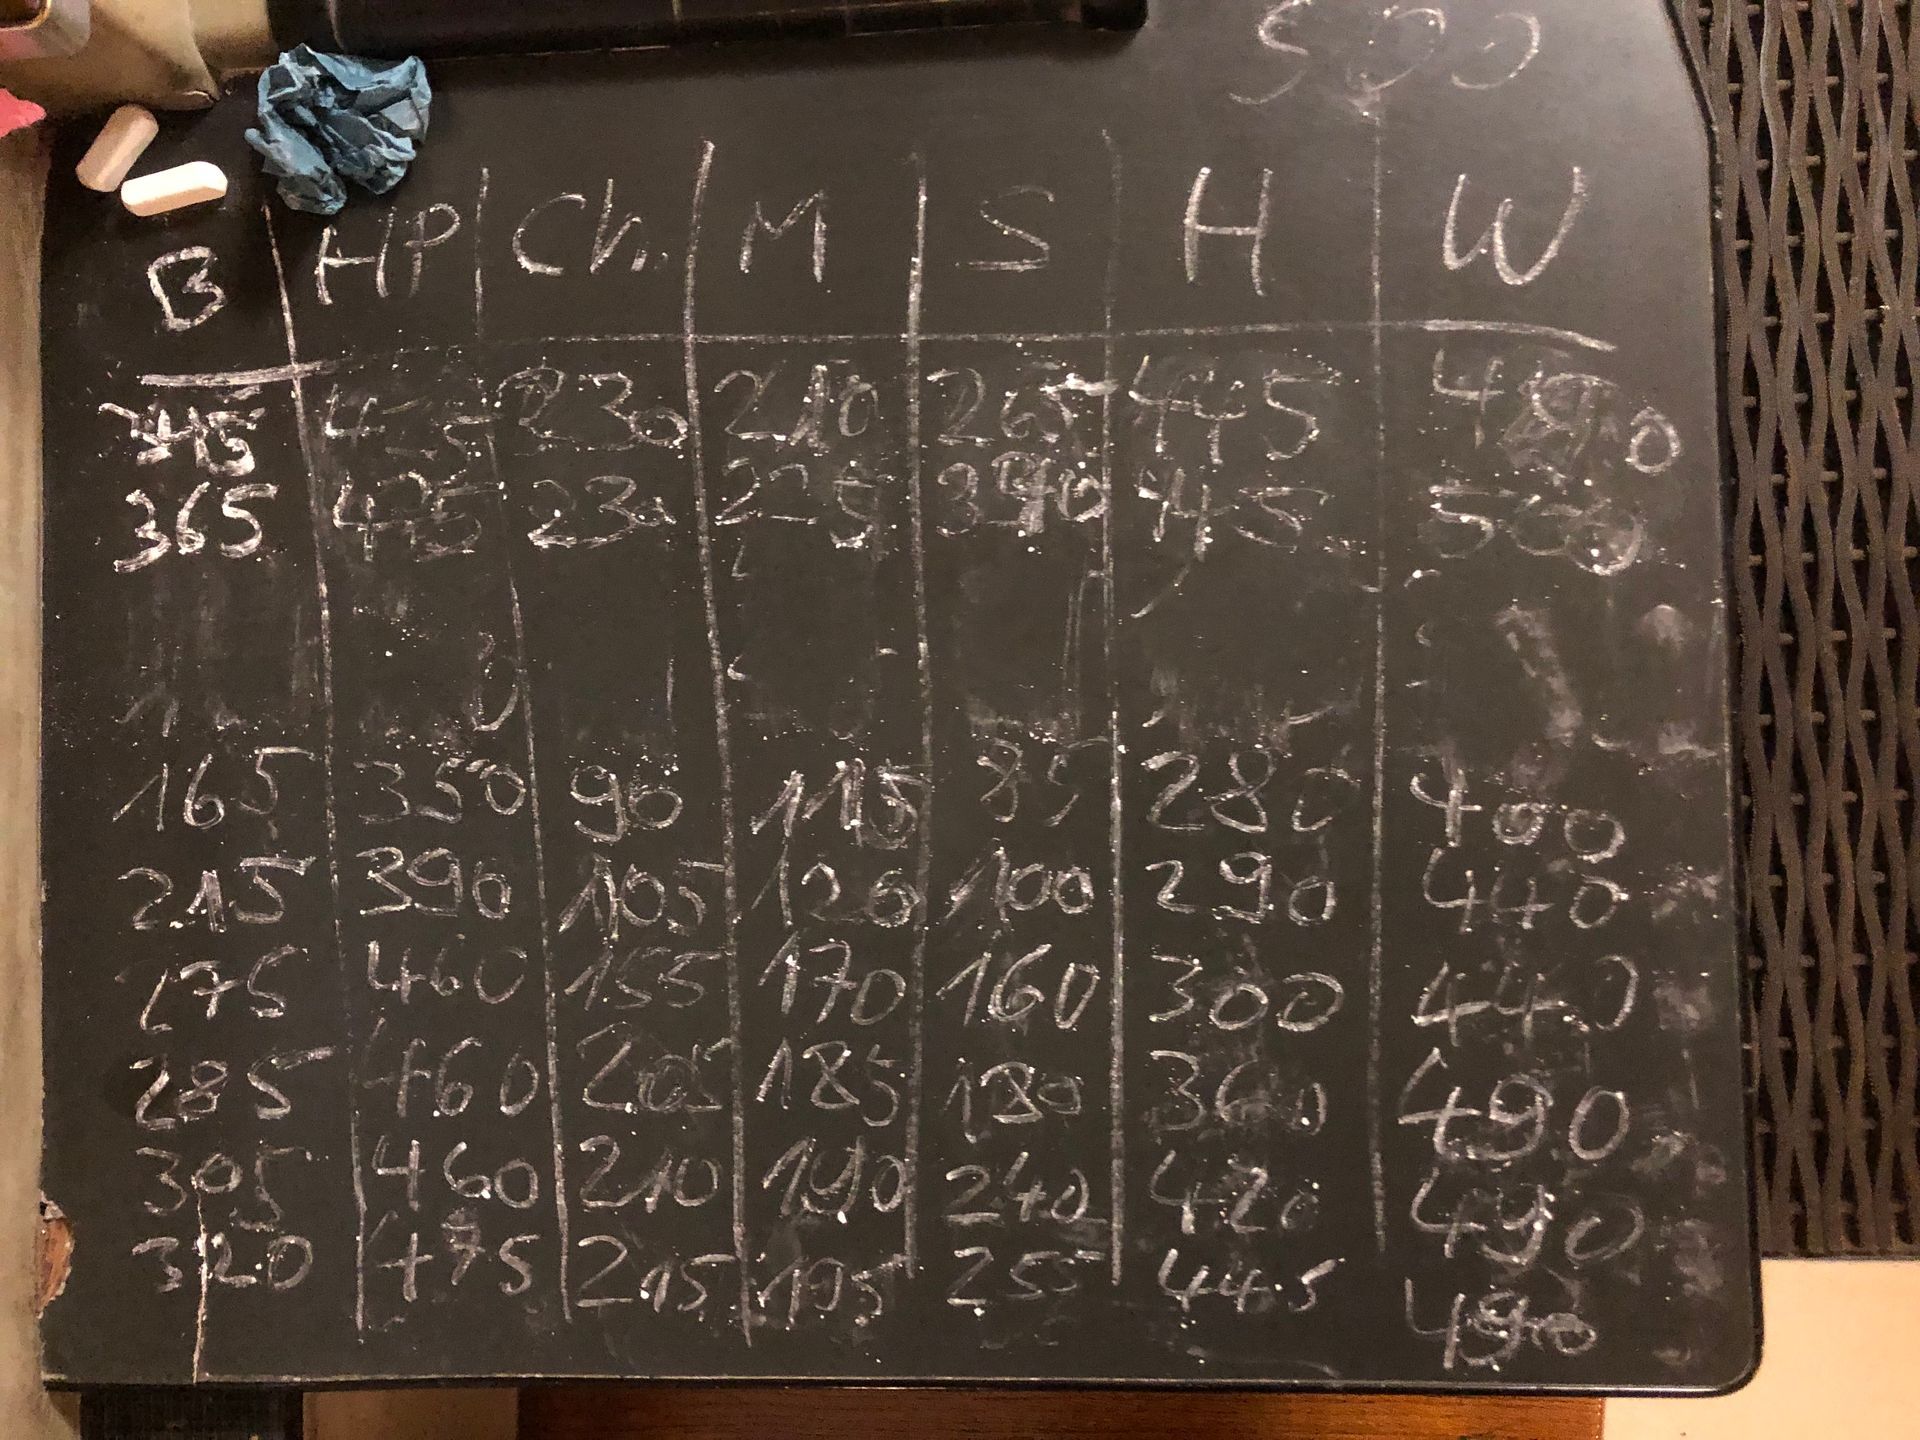 500
B HP Ch. M S H W
345 475 230 210 265 445 490
365 475 230 225 390 445 500
165 350 90 115 85 280 400
215 390 105 120 100 290 440
275 460 155 170 160 300 440
285 460 205 185 180 360 490
305 460 210 190 240 420 490
320 475 215 195 255 445 490